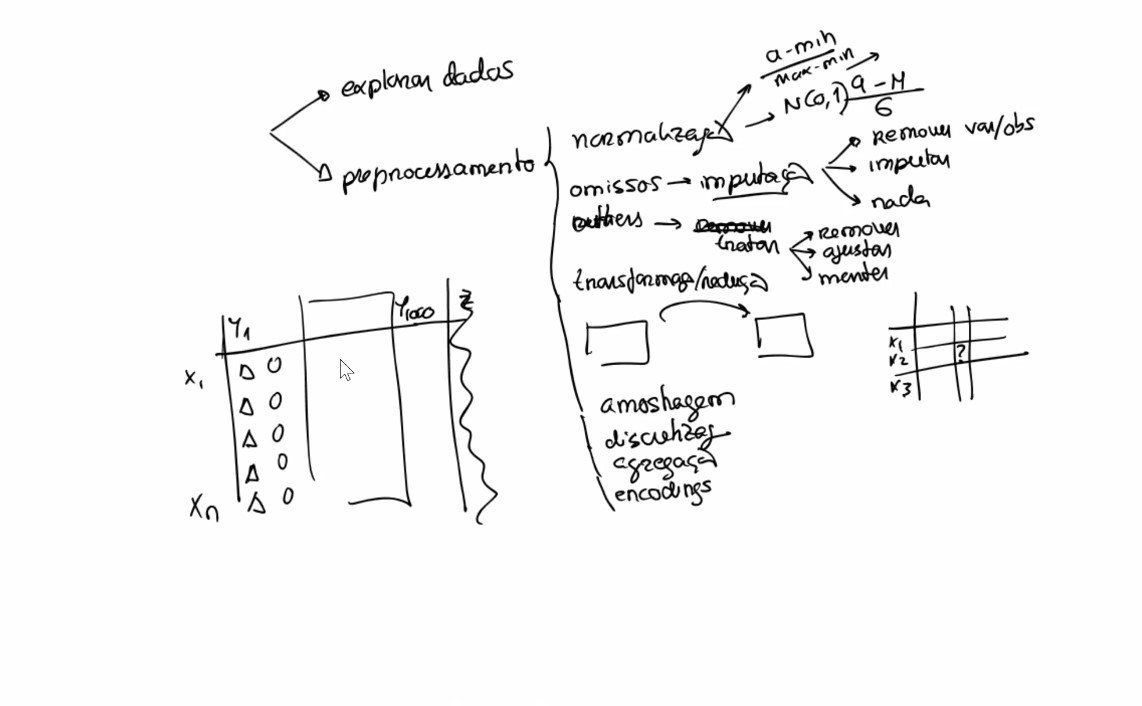 explorar dados
preprocessamento
normalização
a-min
max-min
N(0,1) a-M
6
omissos → imputação
Remover var/obs
imputar
nada
outliers → Remover
tratar
Remover
ajustar
manter
transformação/redução
y1
y1000
z
x1
xn
x1
x2
?
x3
amostragem
discretizaç
agregação
encodings